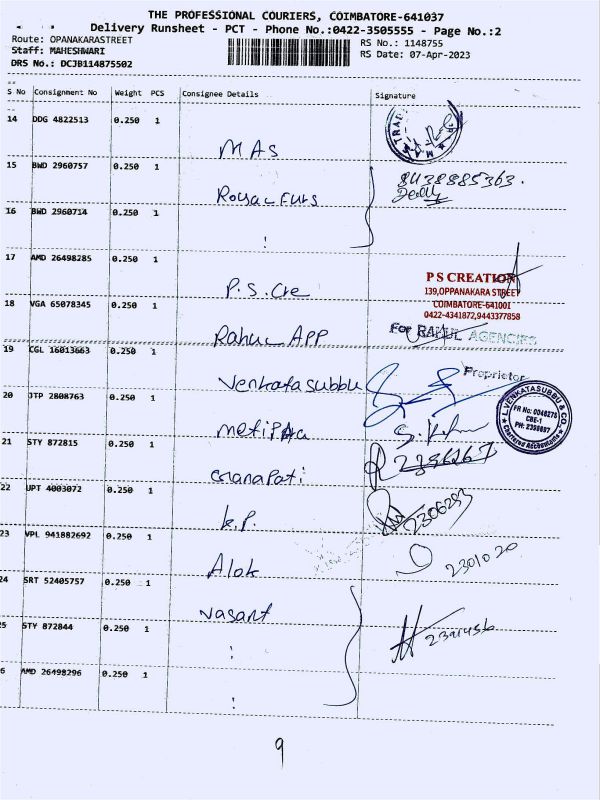 THE PROFESSIONAL COURIERS, COIMBATORE-641037
Delivery Runsheet - PCT - Phone No.:0422-3505555 - Page No.:2
Route: OPANAKARASTREET
RS No.: 1148755
Staff: MAHESHWARI
RS Date: 07-Apr-2023
DRS No.: DCJB114875502
S No Consignment No Weight PCS Consignee Details Signature
14 DDG 4822513 0.250 1
MAS
15 BWD 2960757 0.250 1
8438885363.
Royal Furs
16 BWD 2960714 0.250 1
!
17 AMD 26498285 0.250 1
P S CREATION
139,OPPANAKARA STREET
P.S. Cre
COIMBATORE-641001
18 VGA 65078345 0.250 1
0422-4341872,9443377858
Rahul APP
For RAHUL AGENCIES
19 CGL 16013663 0.250 1
Proprietor
Venkatasubbu
L.VENKATASUBBU & CO.
FR No: 004827S
CBE-1
PH: 2398697
Chartered Accountants
20 JTP 2808763 0.250 1
21 STY 872815 0.250 1
2396267
Ganapati
22 UPT 4003072 0.250 1
2306293
K.P.
23 VPL 941882692 0.250 1
2301020
Alok
24 SRT 52405757 0.250 1
Vasant
5 STY 872844 0.250 1
2391456
!
6 AMD 26498296 0.250 1
!
9